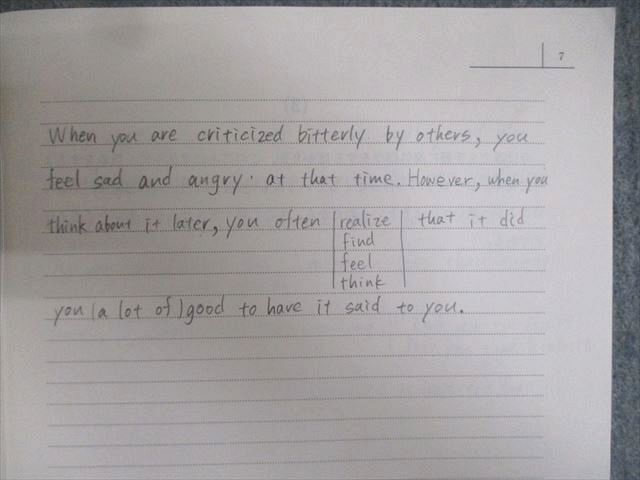 7
When you are criticized bitterly by others, you
feel sad and angry at that time. However, when you
think about it later, you often | realize | that it did
find
feel
think
you (a lot of) good to have it said to you.